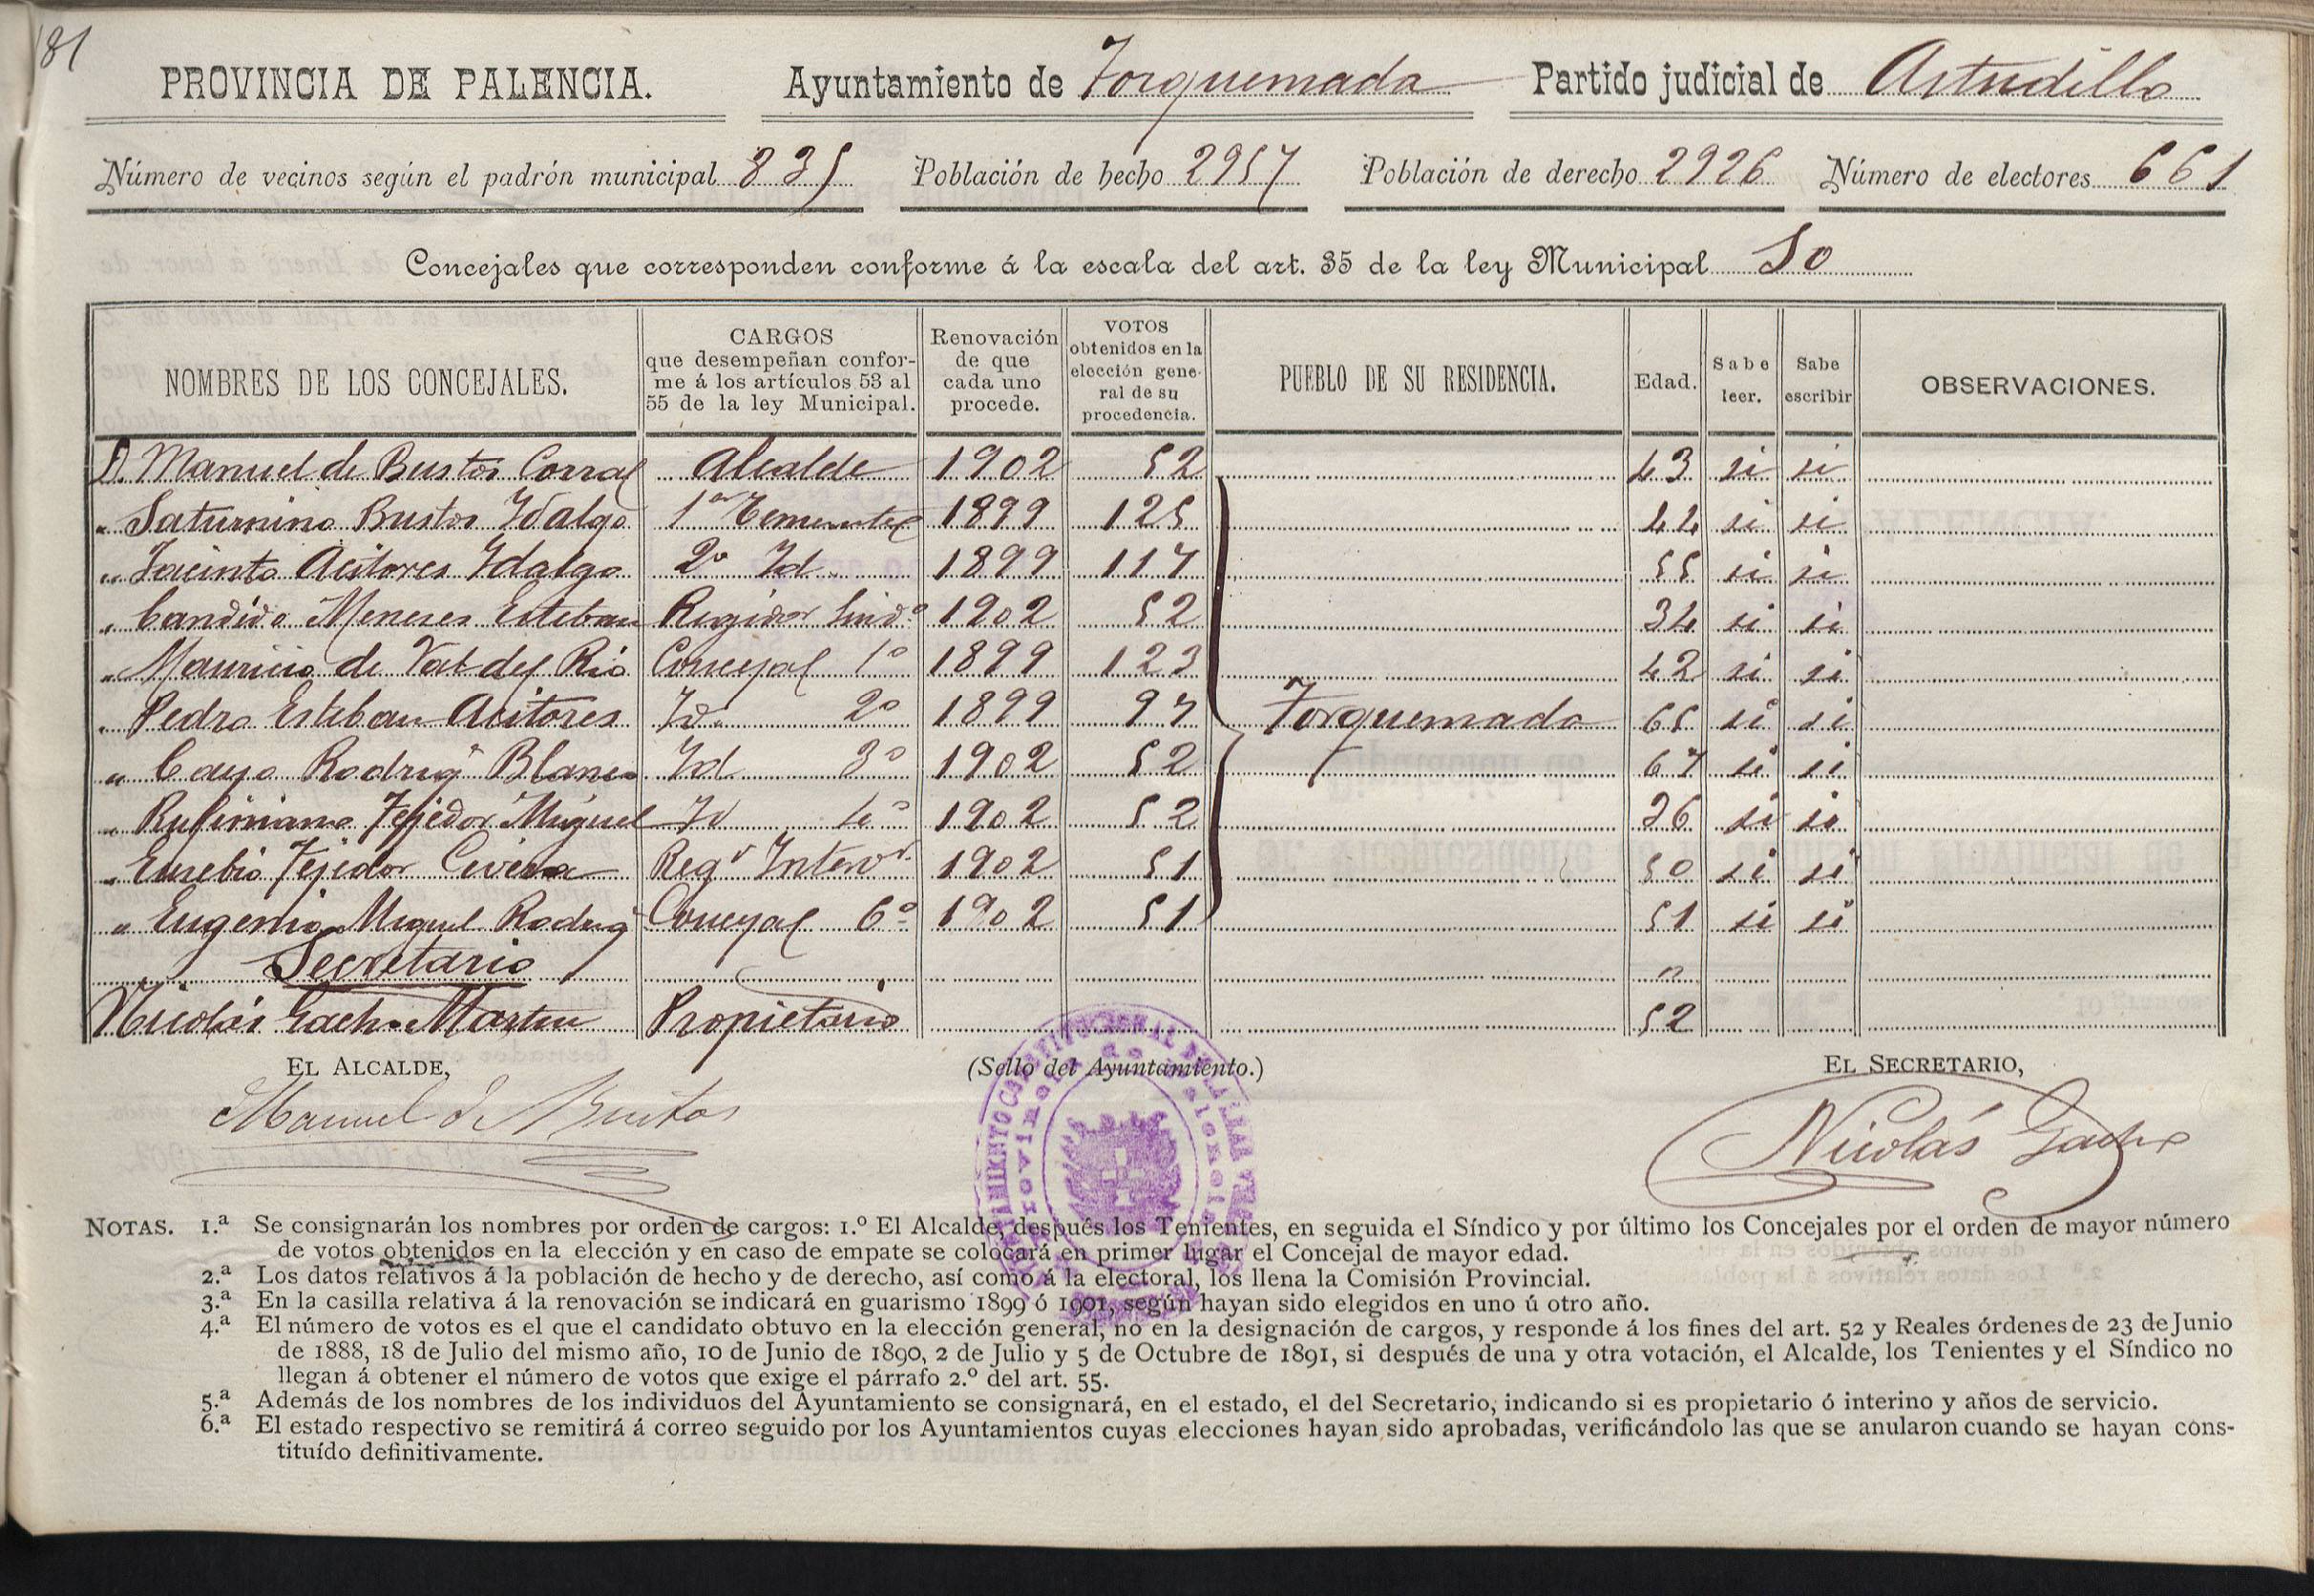 181
PROVINCIA DE PALENCIA. Ayuntamiento de Torquemada Partido judicial de Astudillo
Número de vecinos según el padrón municipal 835 Población de hecho 2957 Población de derecho 2926 Número de electores 661
Concejales que corresponden conforme á la escala del art. 35 de la ley Municipal 10
NOMBRES DE LOS CONCEJALES. CARGOS que desempeñan confor-me á los artículos 53 al 55 de la ley Municipal. Renovación de que cada uno procede. VOTOS obtenidos en la elección gene-ral de su procedencia. PUEBLO DE SU RESIDENCIA. Edad. Sabe leer. Sabe escribir OBSERVACIONES.
D. Manuel de Bustos Corral Alcalde 1902 52 43 si si
" Saturnino Bustos Idalgo 1er Teniente 1899 125 44 si si
" Jacinto Acitores Idalgo 2º Id 1899 117 55 si si
" Candido Meneses Esteban Regidor Sindº 1902 52 34 si si
" Mauricio de Val del Rio Concejal 1º 1899 123 42 si si
" Pedro Esteban Acitores Id. 2º 1899 97 Torquemada 65 si si
" Cayo Rodrig Blanco Id 3º 1902 52 67 si si
" Rufiniano Tejedor Miguel Id 4º 1902 52 36 si si
" Eusebio Tejedor Civera Regr Intervr 1902 51 50 si si
" Eugenio Miguel Rodrig Concejal 6º 1902 51 51 si si
Secretario "
Nicolás Gacho Martin Propietario 52
EL ALCALDE, (Sello del Ayuntamiento.) EL SECRETARIO,
Manuel de Bustos Nicolás Gacho
NOTAS. 1.ª Se consignarán los nombres por orden de cargos: 1.º El Alcalde, después los Tenientes, en seguida el Síndico y por último los Concejales por el orden de mayor número
de votos obtenidos en la elección y en caso de empate se colocará en primer lugar el Concejal de mayor edad.
2.ª Los datos relativos á la población de hecho y de derecho, así como á la electoral, los llena la Comisión Provincial.
3.ª En la casilla relativa á la renovación se indicará en guarismo 1899 ó 1901, según hayan sido elegidos en uno ú otro año.
4.ª El número de votos es el que el candidato obtuvo en la elección general, no en la designación de cargos, y responde á los fines del art. 52 y Reales órdenes de 23 de Junio
de 1888, 18 de Julio del mismo año, 10 de Junio de 1890, 2 de Julio y 5 de Octubre de 1891, si después de una y otra votación, el Alcalde, los Tenientes y el Síndico no
llegan á obtener el número de votos que exige el párrafo 2.º del art. 55.
5.ª Además de los nombres de los individuos del Ayuntamiento se consignará, en el estado, el del Secretario, indicando si es propietario ó interino y años de servicio.
6.ª El estado respectivo se remitirá á correo seguido por los Ayuntamientos cuyas elecciones hayan sido aprobadas, verificándolo las que se anularon cuando se hayan cons-
tituído definitivamente.